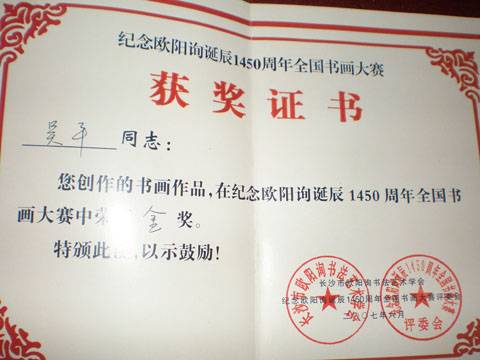 纪念欧阳询诞辰1450周年全国书画大赛
获奖证书
吴平 同志:
您创作的书画作品,在纪念欧阳询诞辰1450周年全国书
画大赛中荣 金 奖。
特颁此 ,以示鼓励!
长沙市欧阳询书法艺术学会
纪念欧阳询诞辰1450周年全国书画大赛评委会
二〇〇七年六月
长沙市欧阳询书法艺术学会
评委会